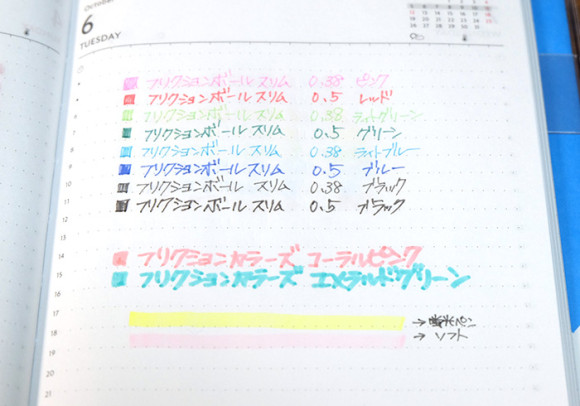 October
6
TUESDAY
フリクションボール スリム 0.38 ピンク
フリクションボール スリム 0.5 レッド
フリクションボール スリム 0.38 ライトグリーン
フリクションボール スリム 0.5 グリーン
フリクションボール スリム 0.38 ライトブルー
フリクションボール スリム 0.5 ブルー
フリクションボール スリム 0.38 ブラック
フリクションボール スリム 0.5 ブラック
フリクションカラーズ コーラルピンク
フリクションカラーズ エメラルドグリーン
→蛍光ペン
→ソフト
7
8
9
10
11
12
13
14
15
16
17
18
19
20
21